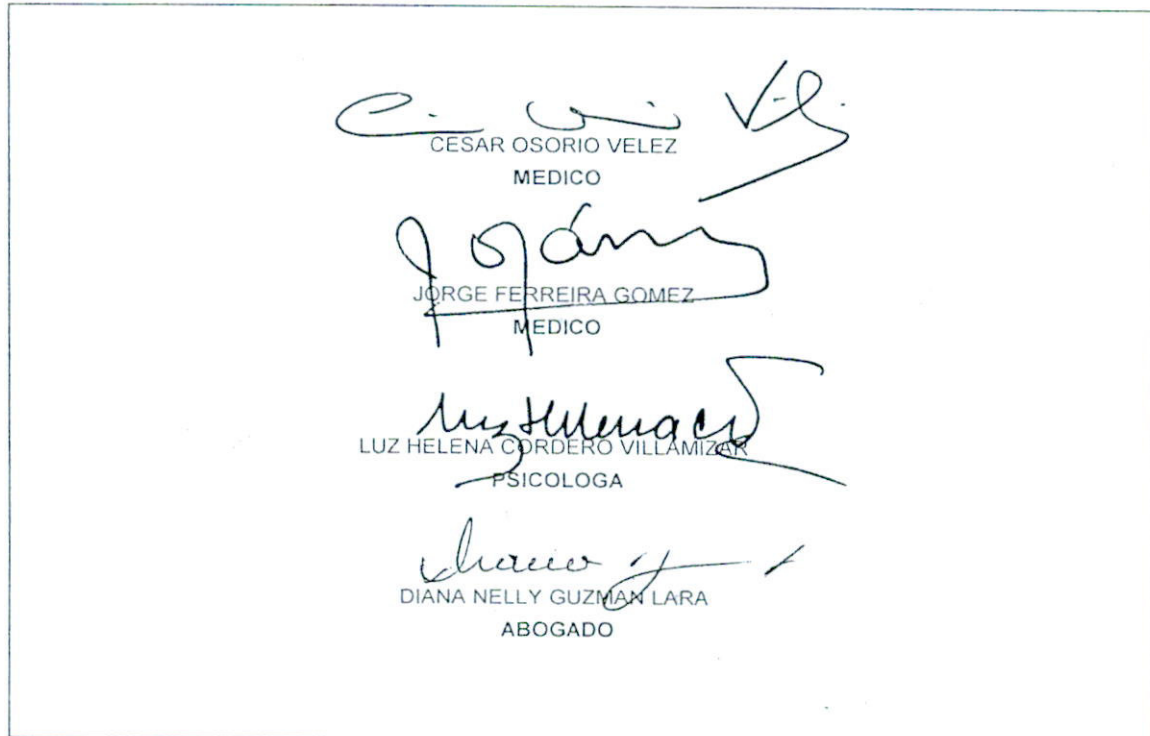 CESAR OSORIO VELEZ
MEDICO
JORGE FERREIRA GOMEZ
MEDICO
Luz Helena
LUZ HELENA CORDERO VILLAMIZAR
PSICOLOGA
DIANA NELLY GUZMAN LARA
ABOGADO